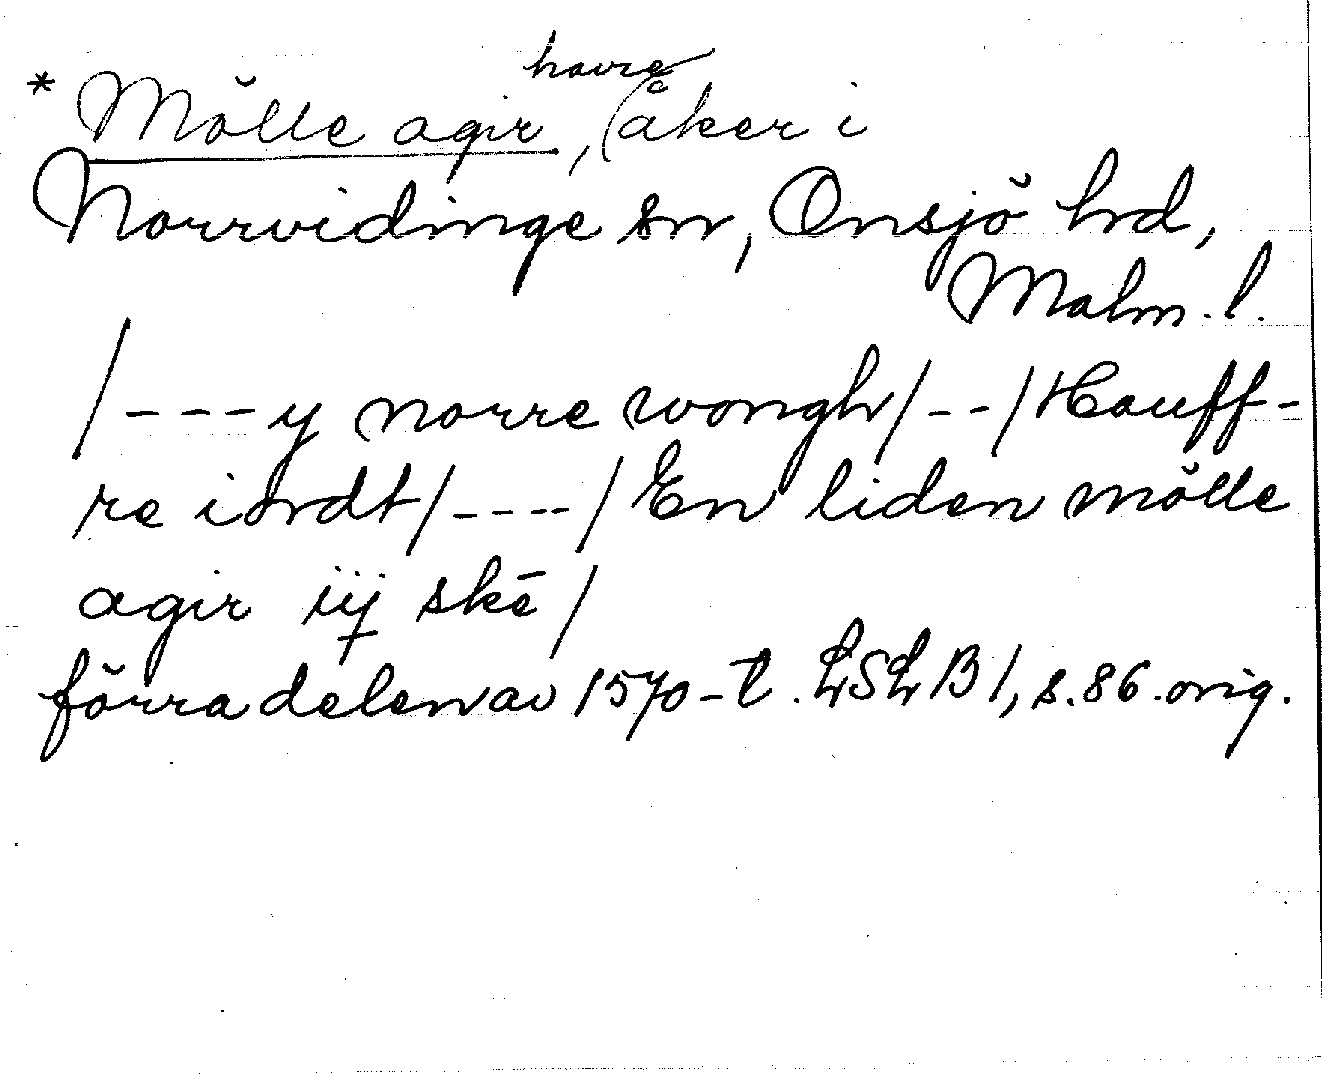 havre
* Mölle agir, (åker i
Norrvidinge sn, Onsjö hrd,
Malm. l.
/---y norre wongh/--/Hauff-
re iordt/----/En liden mölle
agir iij skē/
förra delen av 1570-t. LSLB 1, s. 86. orig.